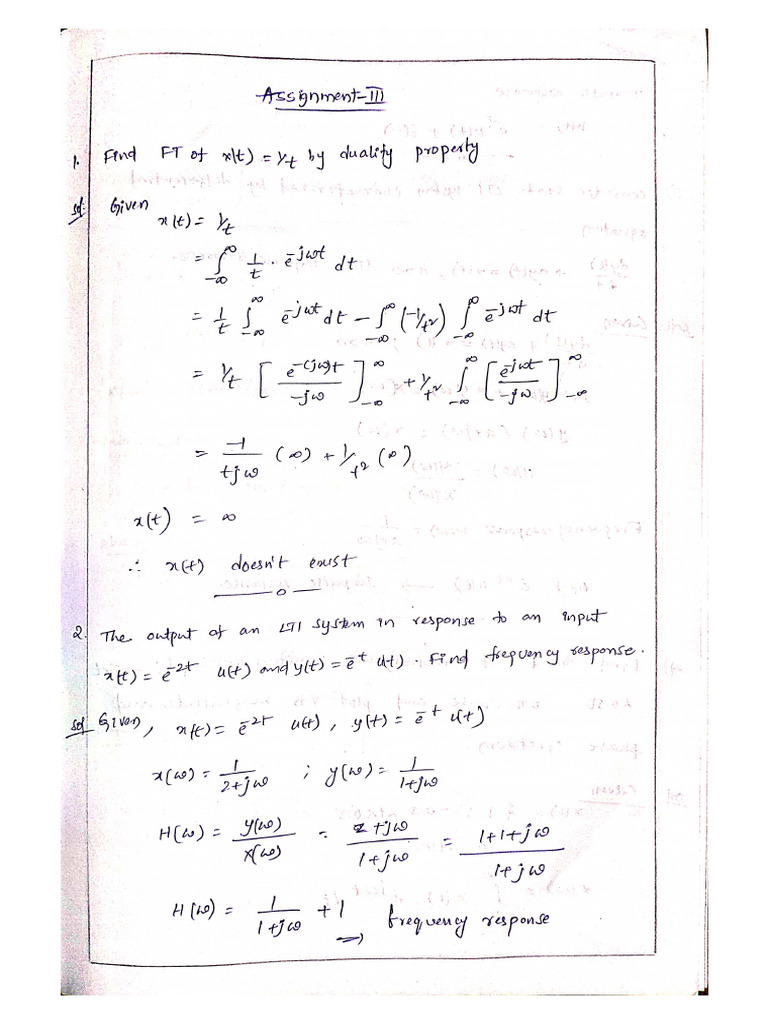 Assignment-III
1. Find FT of x(t) = 1/t by duality property
sol Given
x(t) = 1/t
= ∫_{-∞}^{∞} 1/t · e^{-jωt} dt
= 1/t ∫_{-∞}^{∞} e^{-jωt} dt - ∫_{-∞}^{∞} (-1/t²) ∫_{-∞}^{∞} e^{-jωt} dt
= 1/t [ e^{-(jω)t} / -jω ]_{-∞}^{∞} + 1/t² ∫_{-∞}^{∞} [ e^{-jωt} / -jω ]_{-∞}^{∞}
= -1/tjω (∞) + 1/t² (∞)
x(t) = ∞
∴ x(t) doesn't exist
2. The output of an LTI system in response to an input
x(t) = e^{-2t} u(t) and y(t) = e^{-t} u(t). Find frequency response.
sol Given, x(t) = e^{-2t} u(t), y(t) = e^{-t} u(t)
x(ω) = 1/2+jω ; y(ω) = 1/1+jω
H(ω) = y(ω)/x(ω) = 2+jω/1+jω = 1+1+jω/1+jω
H(ω) = 1/1+jω + 1 → frequency response